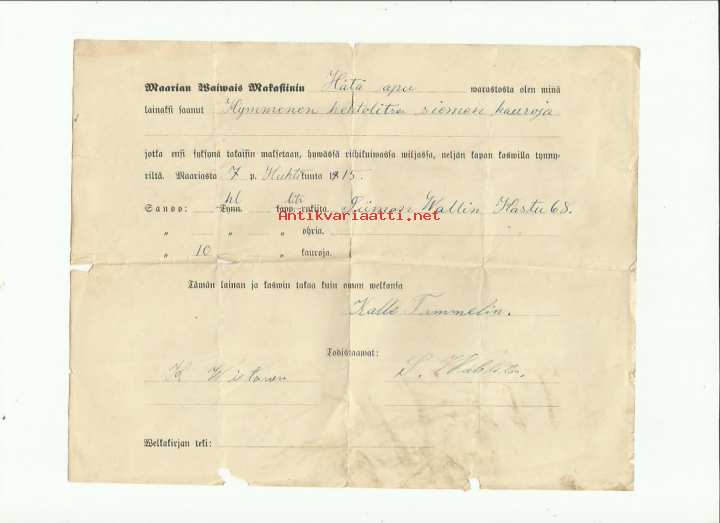 Maarian Waiwais Makasiinin Hätä apu warastosta olen minä
lainaksi saanut Kymmenen hehtolitra siemen kauroja
jotka ensi syksynä takaisin maksetaan, hywässä riihikuiwassa wiljassa, neljän kapan kaswulla tynny-
riltä. Maariasta 7 p. Huhtikuuta 1915.
hl
Sanoo: Tynn. kapp. rukiita. Wallin Kastu 68.
" " " ohria.
" 10 " " kauroja.
Antikvariaatti.net
Tämän lainan ja kaswun takaa kuin oman welkansa
Kalle Tammelin.
Todistaawat:
K
S.
Welkakirjan teki: